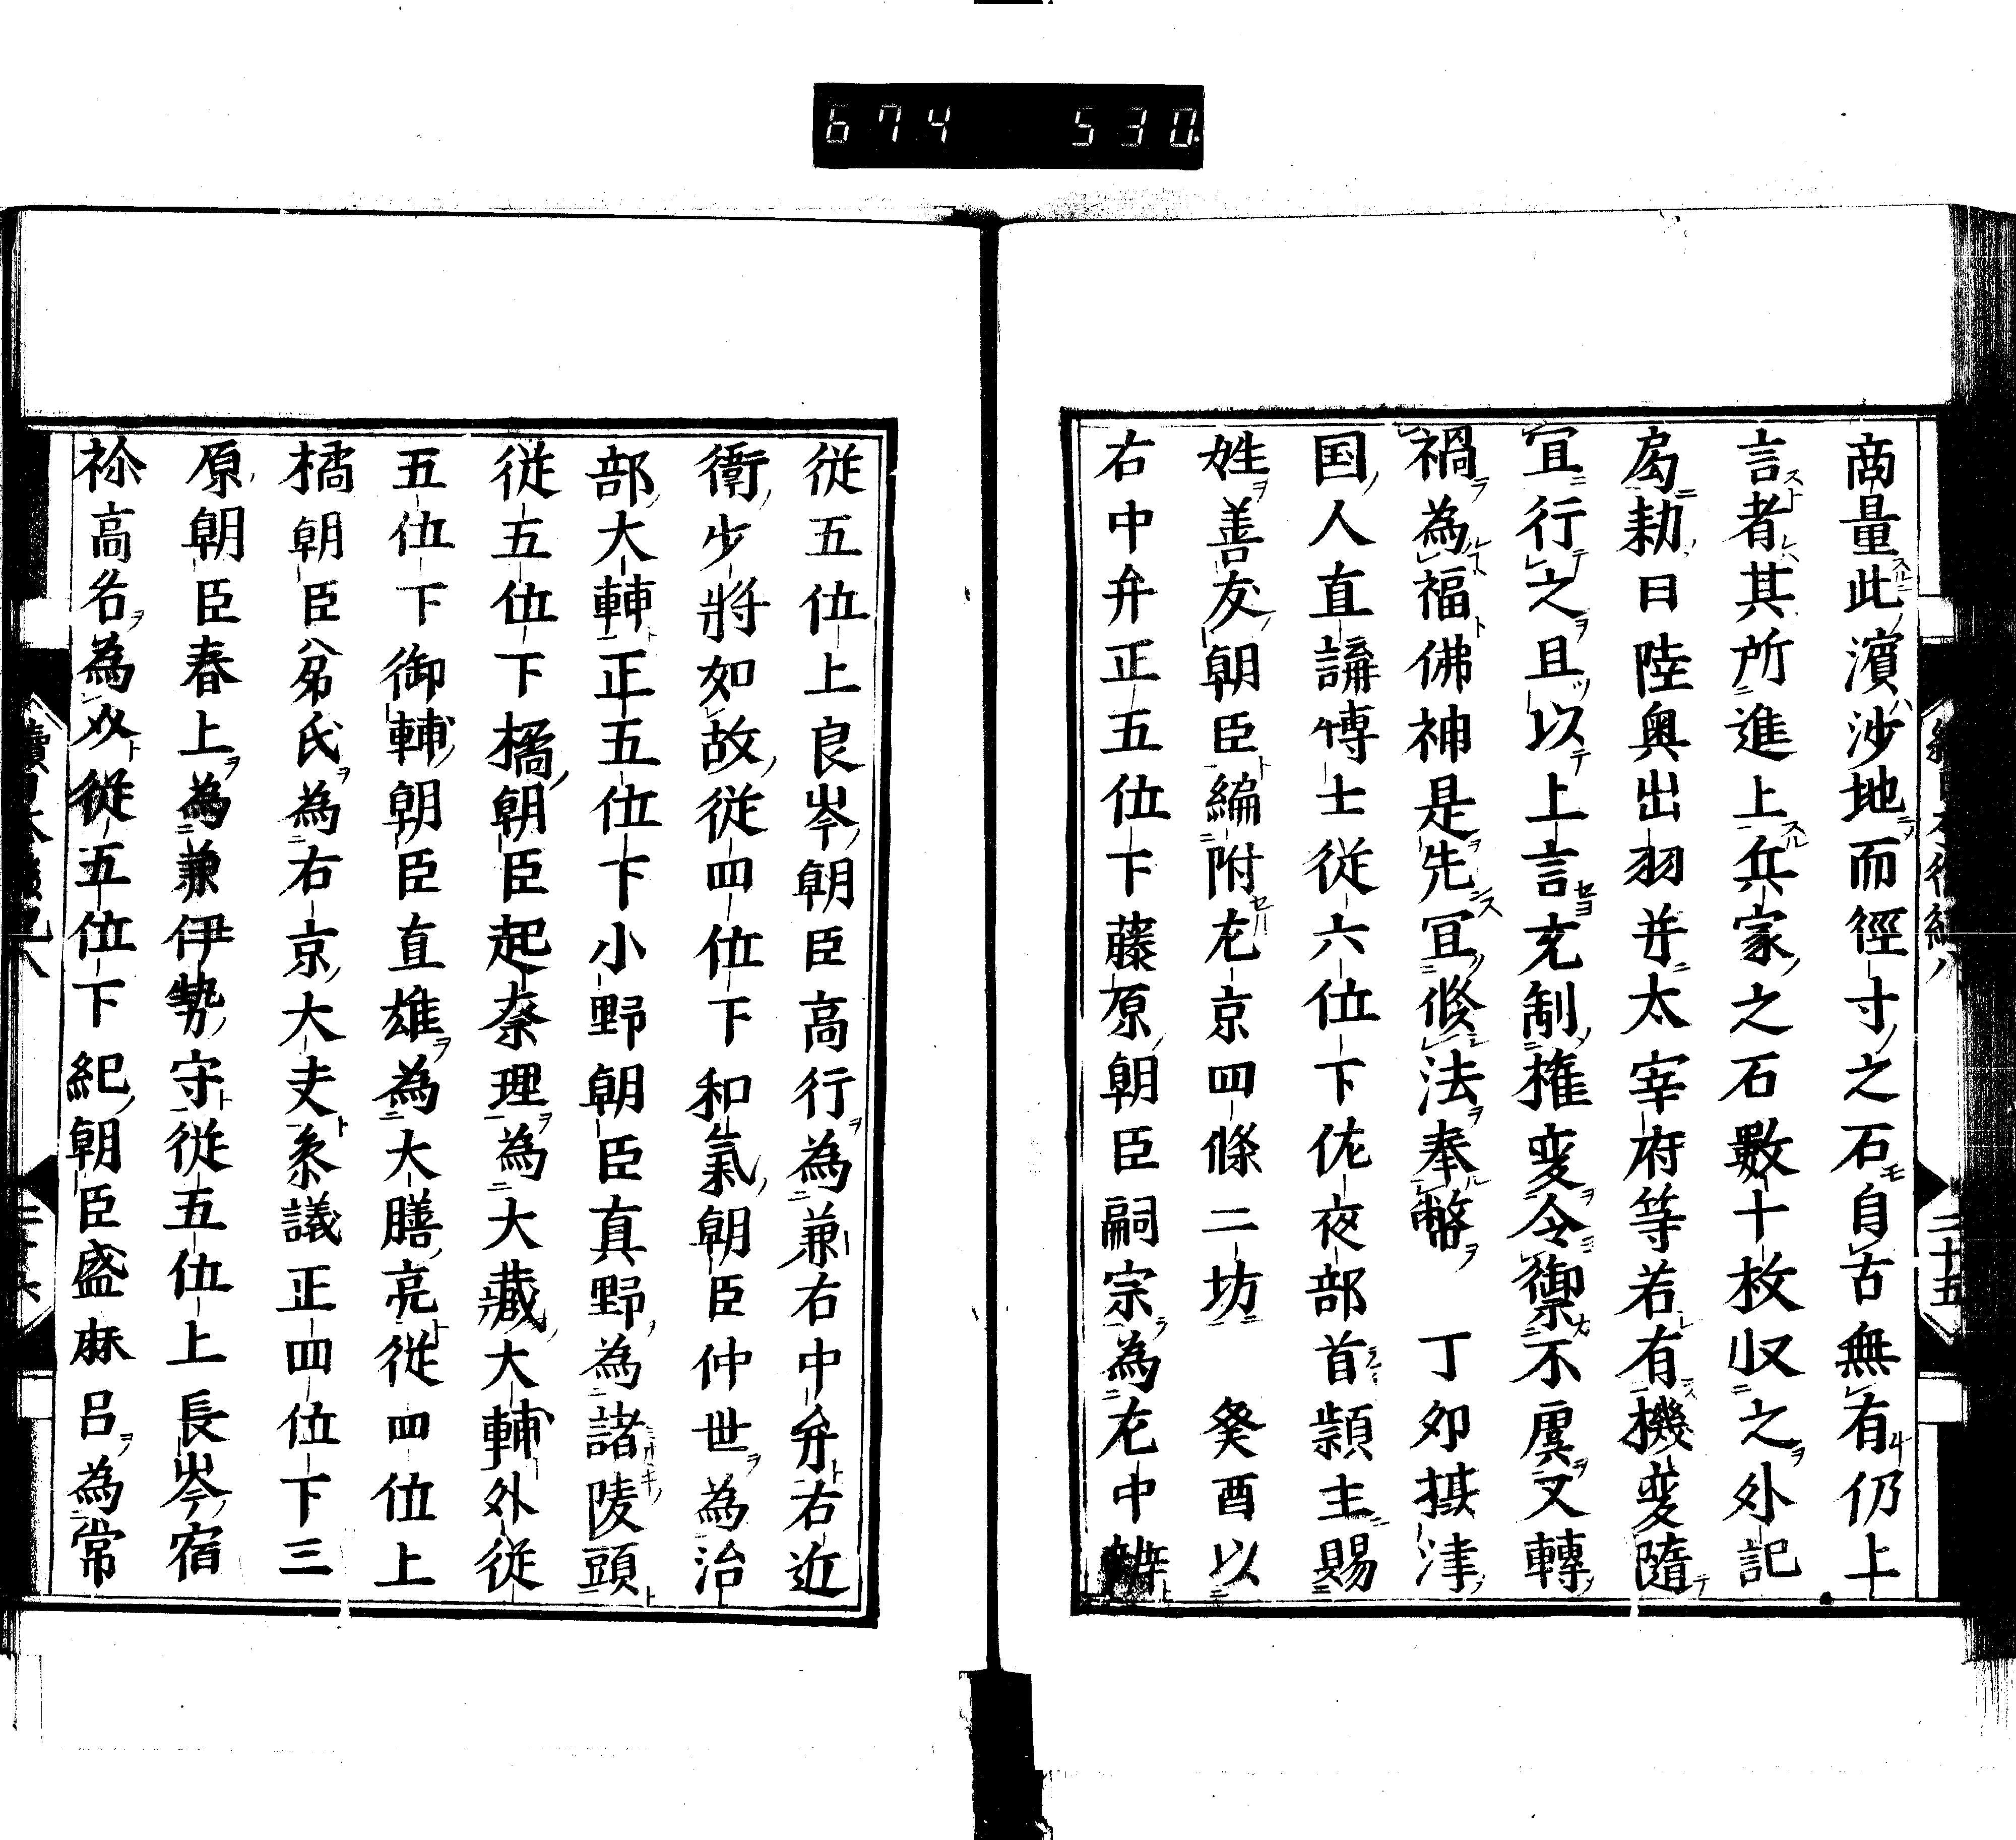 674 530
商量此濱沙地而徑寸之石自古無有仍上
言者其所進上兵家之石數十枚収之外記
局勅曰陸奥出羽并太宰府等若有機変随
宜行之且以上言充制権変令禦不虞又轉
禍為福佛神是先冝修法奉幣 丁夘摂津
国人直講博士従六位下佐夜部首頴主賜
姓善友朝臣編附左京四條二坊 癸酉以
右中弁正五位下藤原朝臣嗣宗為左中辨
二十五
従五位上良岑朝臣高行為兼右中弁右近
衛少將如故従四位下和氣朝臣仲世為治
部大輔正五位下小野朝臣真野為諸陵頭
従五位下橘朝臣起奈理為大藏大輔外従
五位下御輔朝臣直雄為大膳亮従四位上
橘朝臣弟氏為右京大夫参議正四位下三
原朝臣春上為兼伊勢守従五位上長岑宿
祢高名為介従五位下紀朝臣盛麻呂為常